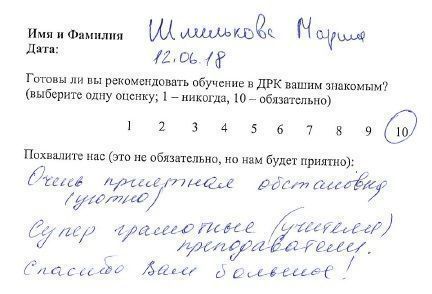 Имя и Фамилия Шмилькова Мария
Дата: 12.06.18
Готовы ли вы рекомендовать обучение в ДРК вашим знакомым?
(выберите одну оценку; 1 – никогда, 10 – обязательно)
1 2 3 4 5 6 7 8 9 10
Похвалите нас (это не обязательно, но нам будет приятно):
Очень приятная обстановка
(уютно)
Супер грамотные (учителя)
преподаватели.
Спасибо Вам большое!